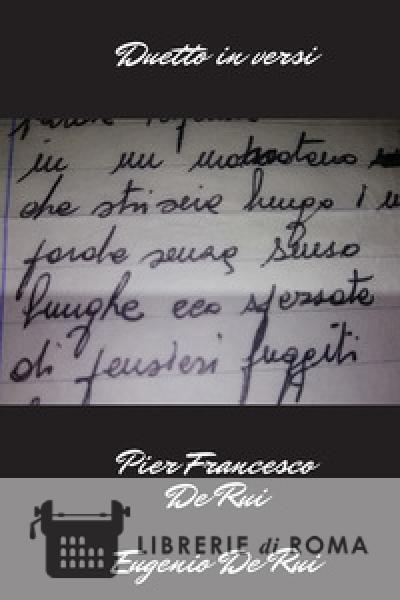 Duetto in versi
in un
che striscia lungo i
parole senza senso
lunghe eco spezzate
di pensieri fuggiti
Pier Francesco
De Rui
LIBRERIE di ROMA
Eugenio De Rui